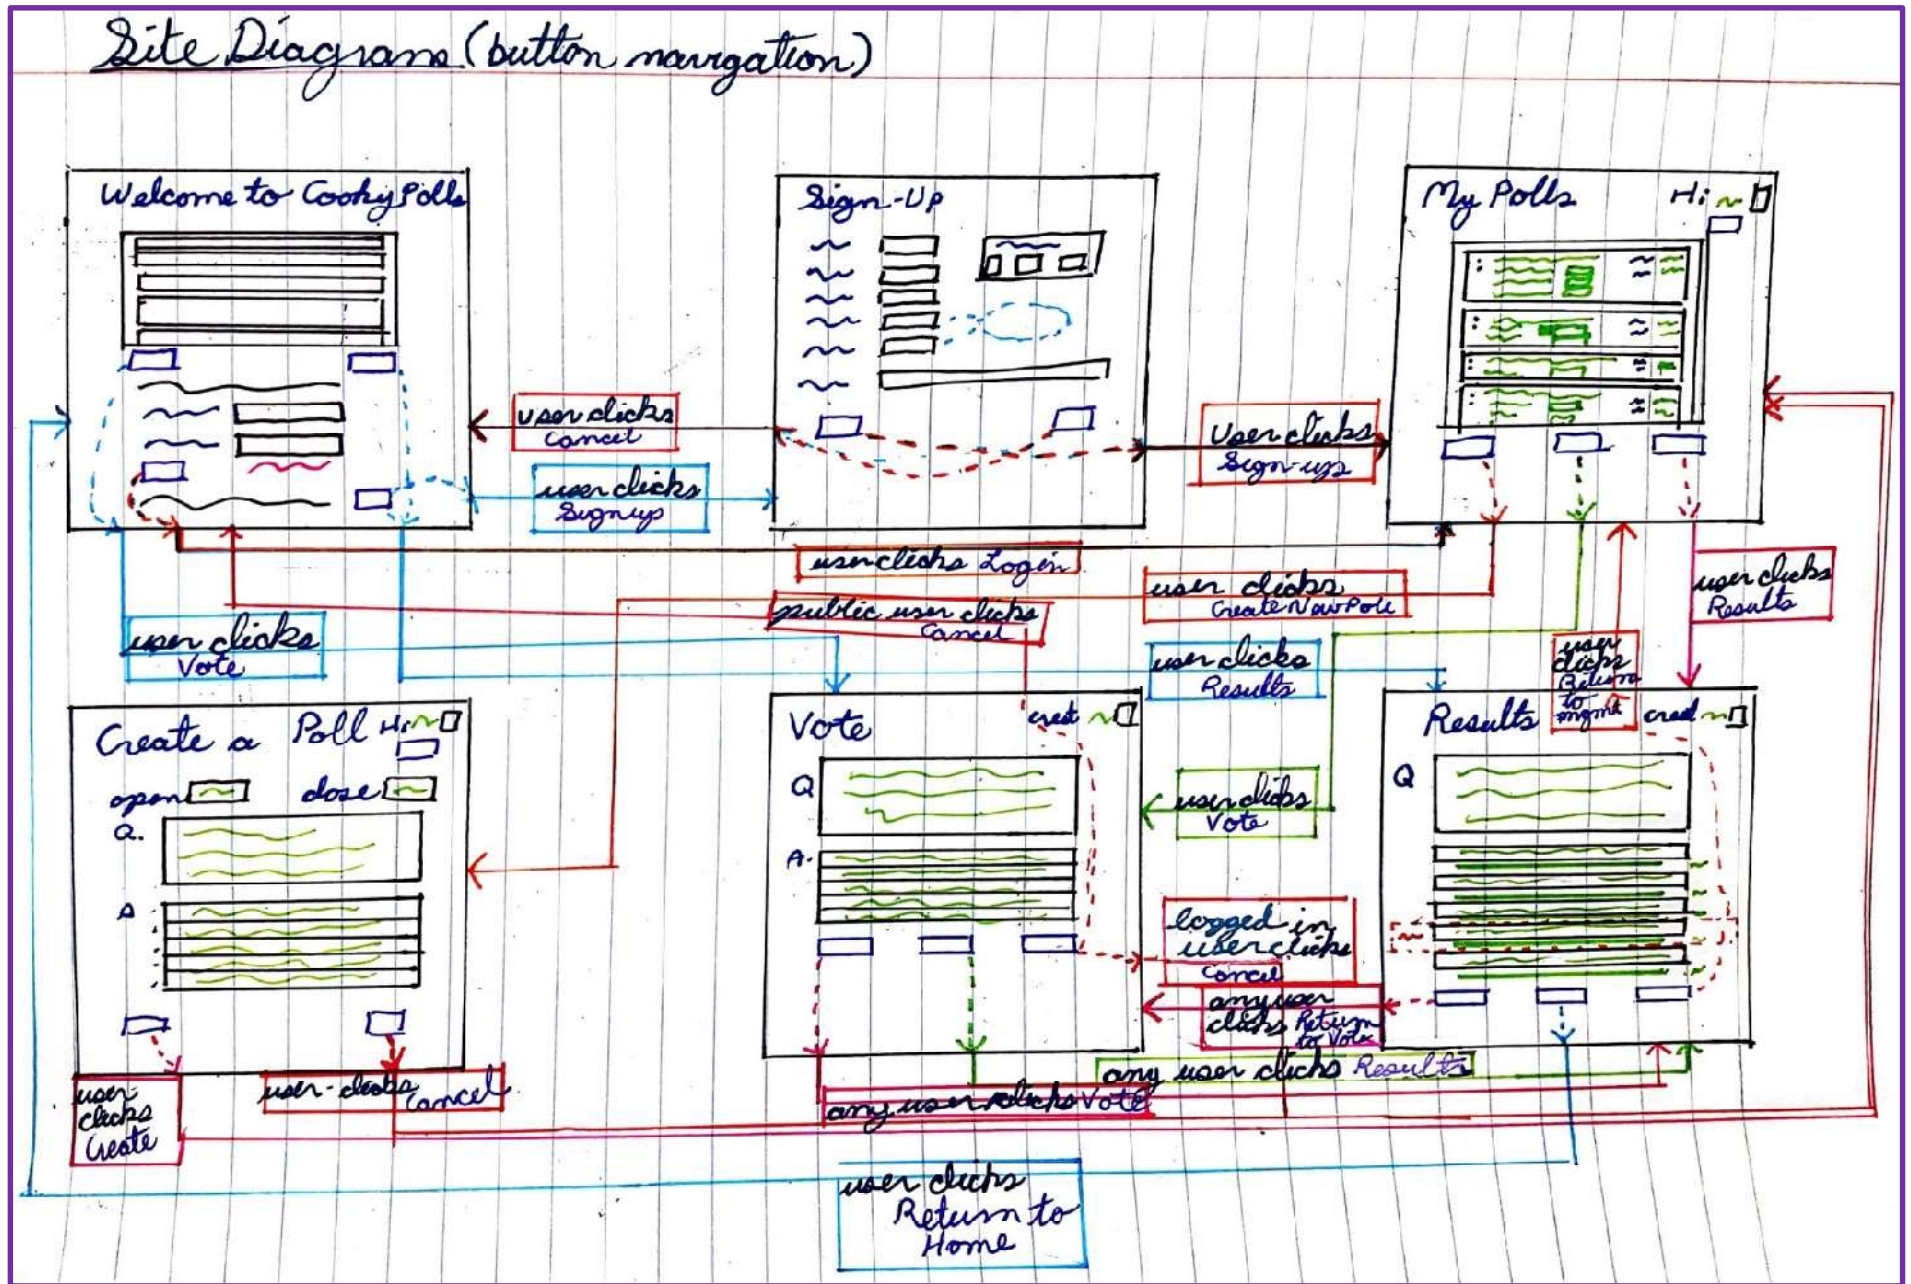 Site Diagram (button navigation)
Welcome to Cooky Polls
Sign-Up
My Polls
Hi
user clicks
Cancel
user clicks
Signup
User clicks
Sign-up
user clicks Login
public user clicks
Cancel
user clicks
Create New Poll
user clicks
Results
user clicks
Vote
user clicks
Results
user
clicks
Return
to
mgmt
Create a Poll
Hi
open
close
Q.
A
Vote
Q
A.
user clicks
Vote
Results
Q
logged in
user clicks
Cancel
any user
clicks Return
to Vote
any user clicks Results
any user clicks Vote
user
clicks
Create
user-clicks
Cancel
user clicks
Return to
Home